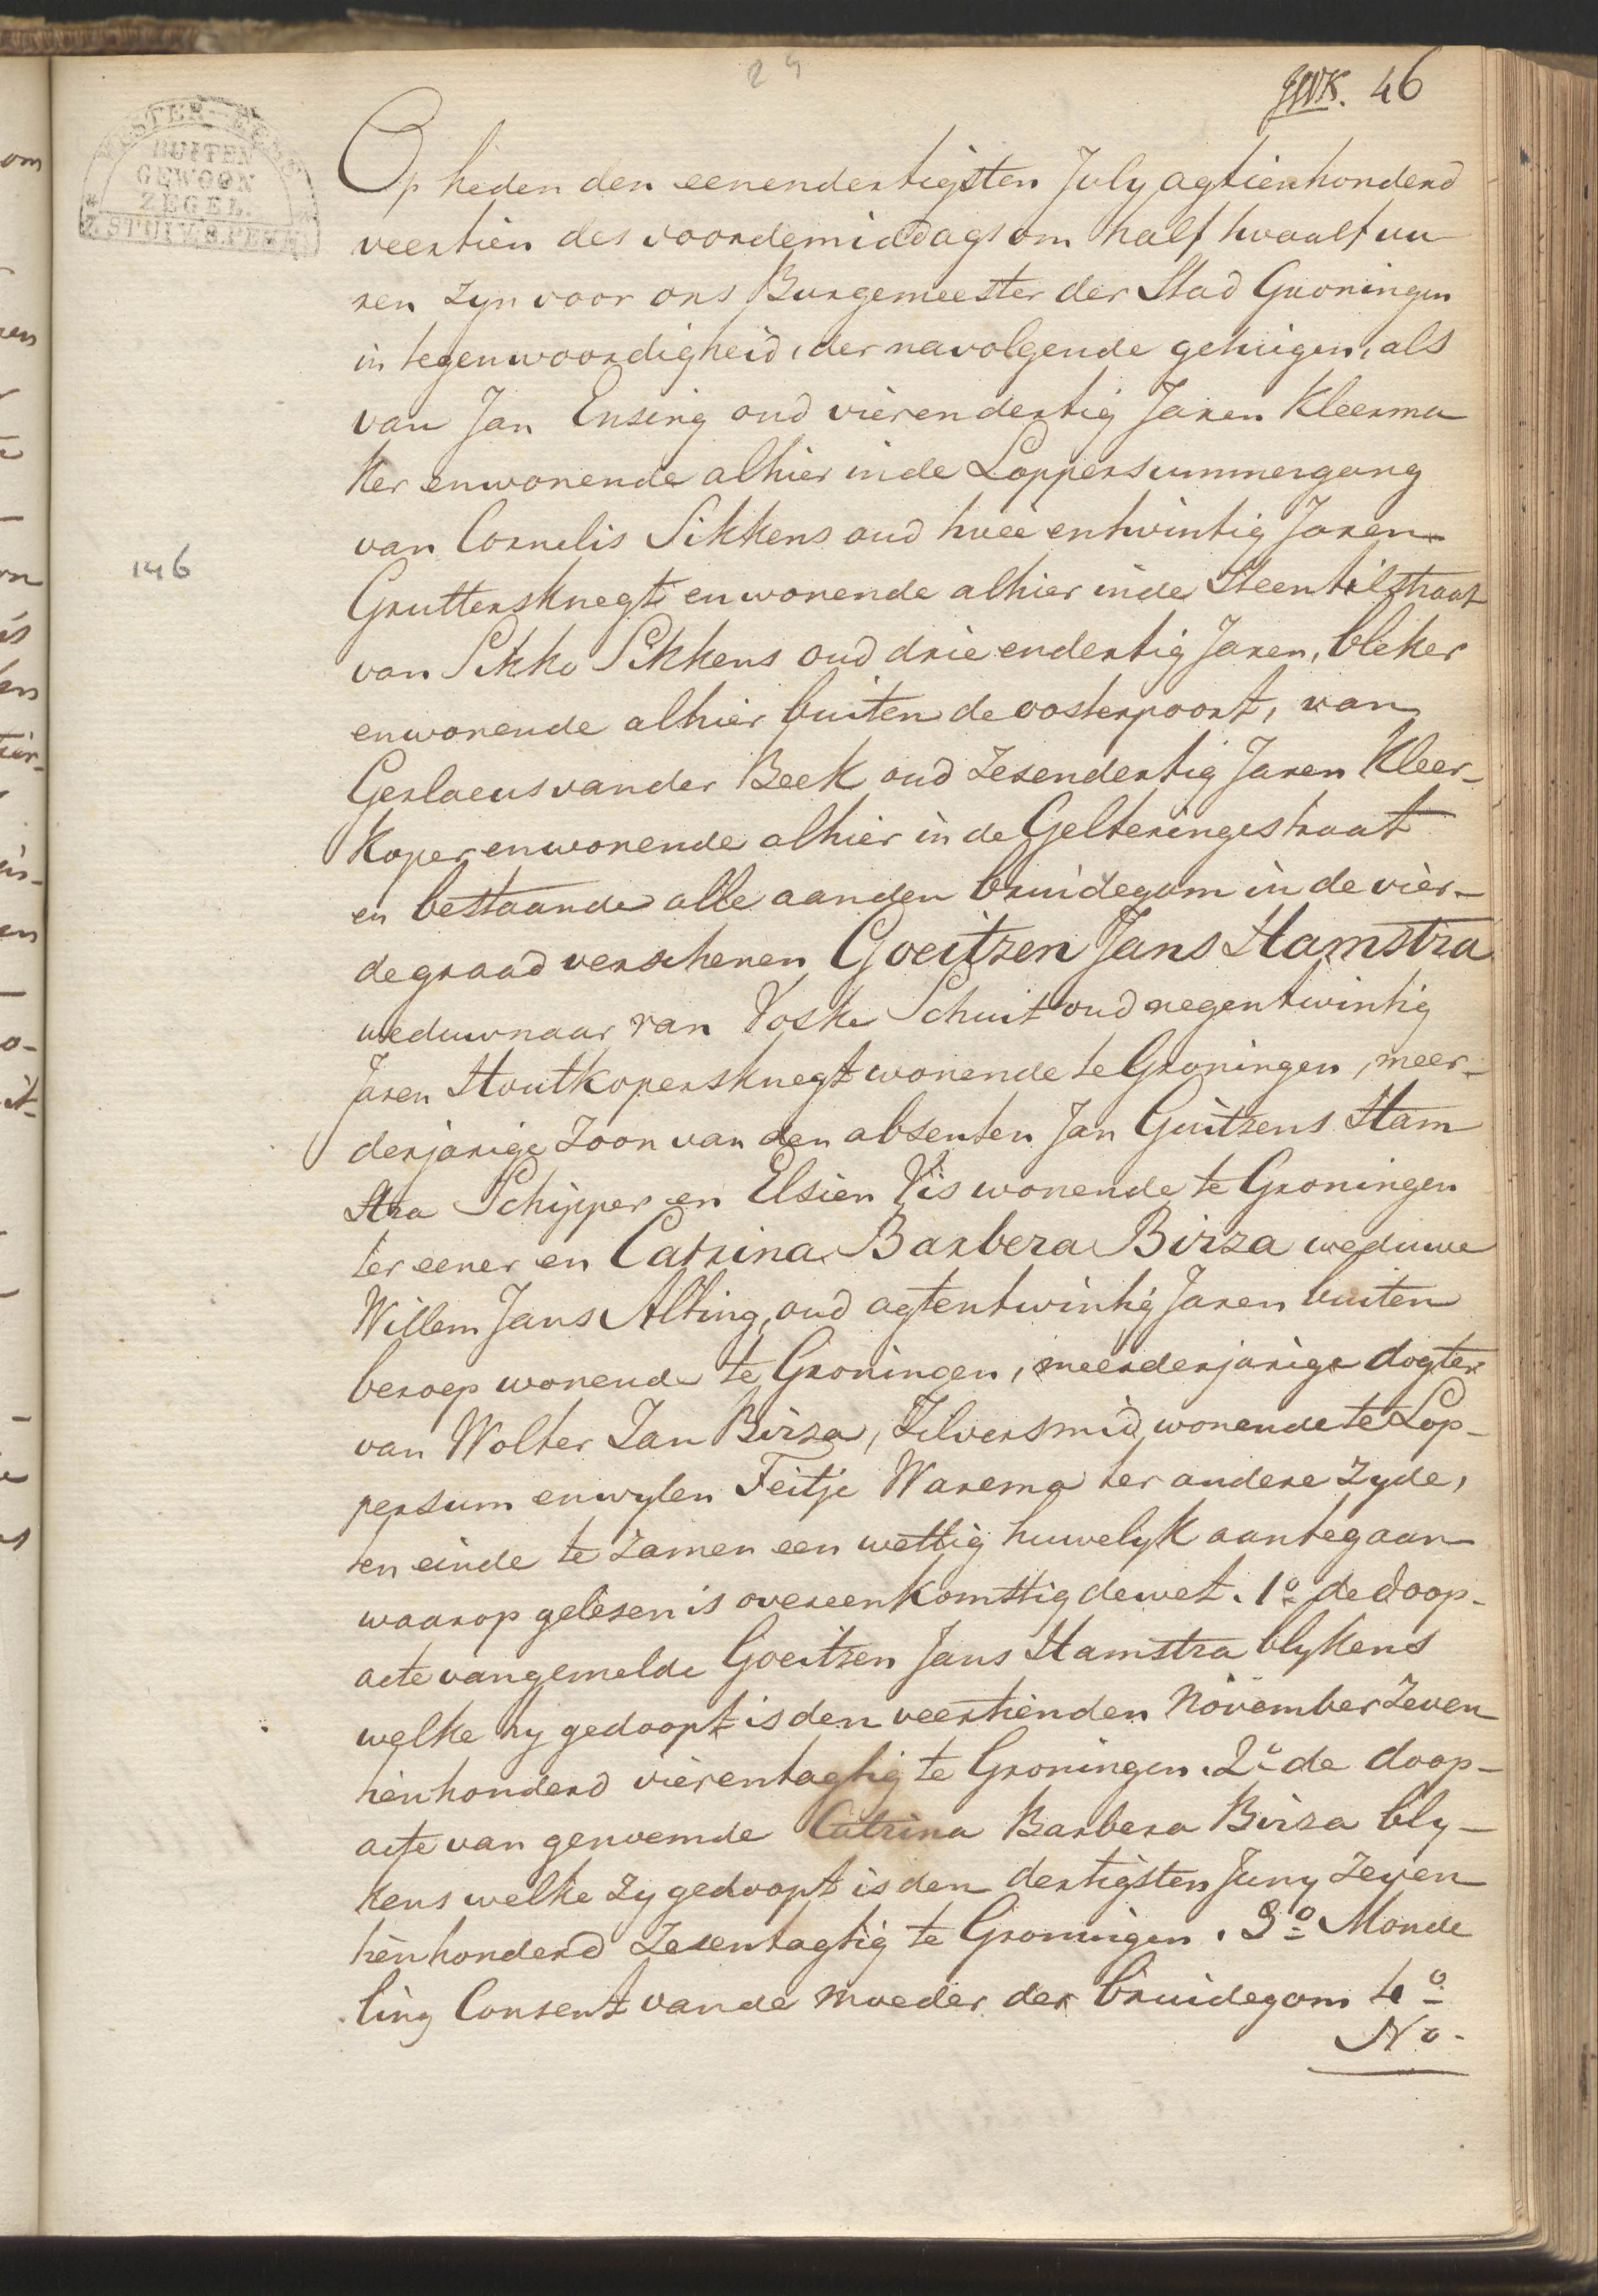 29
JWK. 46
WESTER-EEMS
BUITEN
GEWOON
ZEGEL.
Z. STUIV. 8. PENN.
146
Op heden den eenendertigsten July agtienhonderd
veertien des voordemiddags om half twaalf uu
ren zyn voor ons Burgemeester der Stad Groningen
in tegenwoordigheid, der navolgende getuigen, als
van Jan Ensing oud vierendertig Jaren Kleerma
ker en wonende alhier in de Loppersummergang
van Cornelis Sikkens oud twee entwintig Jaren
Gruttersknegt en wonende alhier in de Steentilstraat
van Sikko Sikkens oud drie endertig Jaren, bleker
en wonende alhier buiten de oosterpoort, van
Gerlacus vander Beek oud zesendertig Jaren Kleer-
koper en wonende alhier in de Gelkeringestraat
en bestaande alle aan den bruidegom in de vier-
de graad verschenen Goeitzen Jans Hamstra
weduwnaar van Voske Schuit oud negentwintig
Jaren Houtkopersknegt wonende te Groningen, meer-
derjarige zoon van den absenten Jan Guitzens Ham
stra Schipper en Elsien Vis wonende te Groningen
ter eener en Catrina Barbera Birza weduwe
Willem Jans Alting, oud agtentwintig Jaren buiten
beroep wonende te Groningen, meerderjarige dogter
van Wolter Jan Birza, Zilversmid, wonende te Lop-
persum en wylen Feitje Warema ter andere zyde,
en einde te zamen een wettig huwelyk aantegaan
waarop gelesen is overeenkomstig de wet. 1o de doop-
acte van gemelde Goeitzen Jans Hamstra blykens
welke hy gedoopt is den veertienden November zeven
tienhonderd vierentagtig te Groningen. 2o de doop-
acte van genoemde Catrina Barbera Birza bly-
kens welke zy gedoopt is den dertigsten Juny zeven
tienhonderd zesentagtig te Groningen. 3o Monde
ling Consent van de moeder der bruidegom 4o
No-